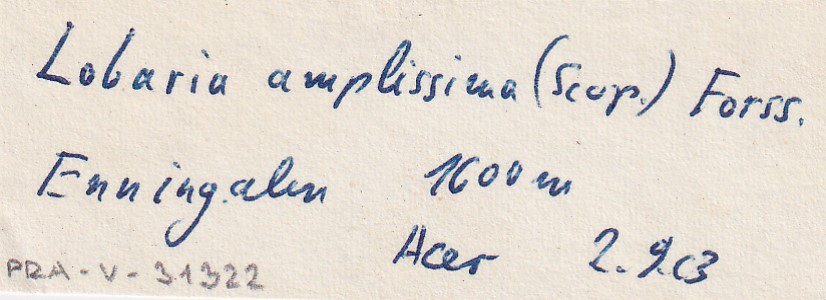 Lobaria amplissima (Scop.) Forss.
Enningalm 1600m
Acer 2.9.63
PRA-V-31322